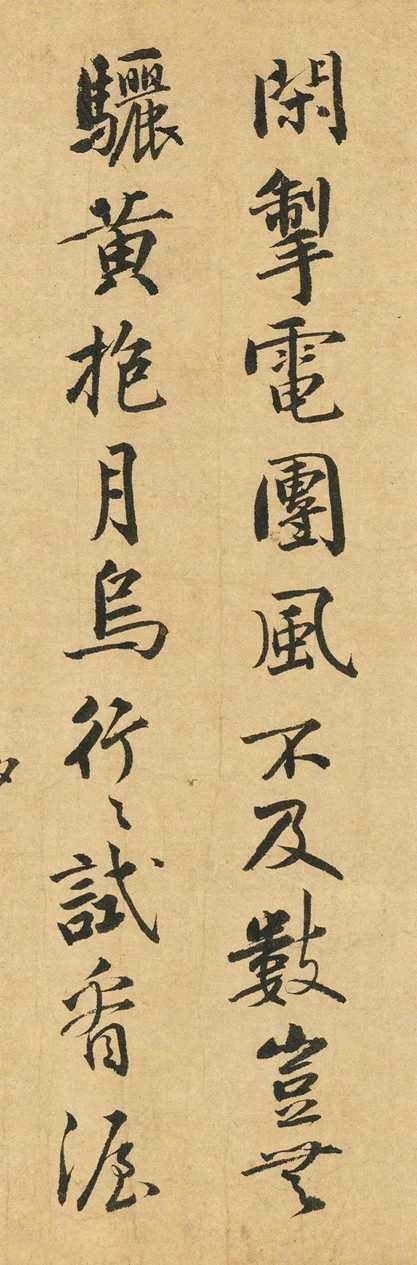 閑掣電團風不及數豈無
驪黃抱月烏行〻試看渥